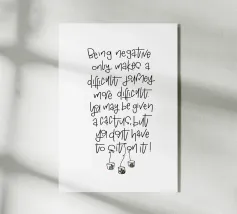 Being negative
only makes a
difficult journey
more difficult
You may be given
a cactus, but
you don't have
to sit on it!